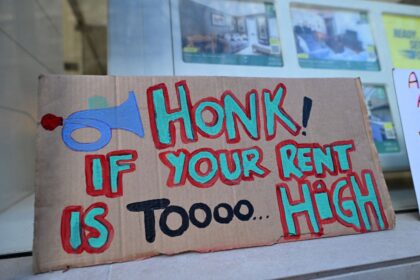 HONK!
IF YOUR RENT
IS TOOOO... HIGH
READY